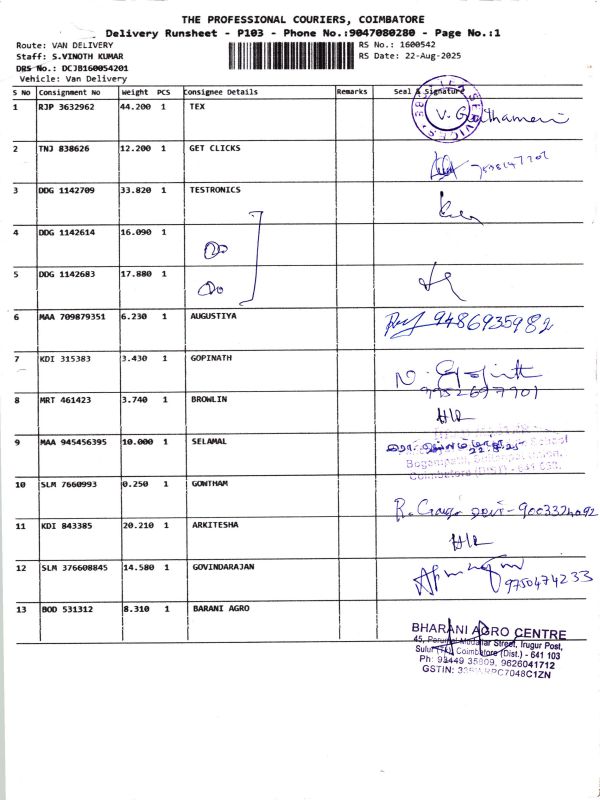 THE PROFESSIONAL COURIERS, COIMBATORE
Delivery Runsheet - P103 - Phone No.:9047080280 - Page No.:1
Route: VAN DELIVERY RS No.: 1600542
Staff: S.VINOTH KUMAR RS Date: 22-Aug-2025
DRS No.: DCJB160054201
Vehicle: Van Delivery
S No Consignment No Weight PCS Consignee Details Remarks Seal & Signature
1 RJP 3632962 44.200 1 TEX
2 TNJ 838626 12.200 1 GET CLICKS
3 DDG 1142709 33.820 1 TESTRONICS
4 DDG 1142614 16.090 1
5 DDG 1142683 17.880 1
6 MAA 709879351 6.230 1 AUGUSTIYA 9486935982
7 KDI 315383 3.430 1 GOPINATH
8 MRT 461423 3.740 1 BROWLIN
9 MAA 945456395 10.000 1 SELAMAL
10 SLM 7660993 0.250 1 GOWTHAM
11 KDI 843385 20.210 1 ARKITESHA
12 SLM 376608845 14.580 1 GOVINDARAJAN 9750474233
13 BOD 531312 8.310 1 BARANI AGRO
BHARANI AGRO CENTRE
45, Street, Irugur Post,
Sulur (TK), Coimbatore (Dist.) - 641 103
Ph: 9626041712
GSTIN: